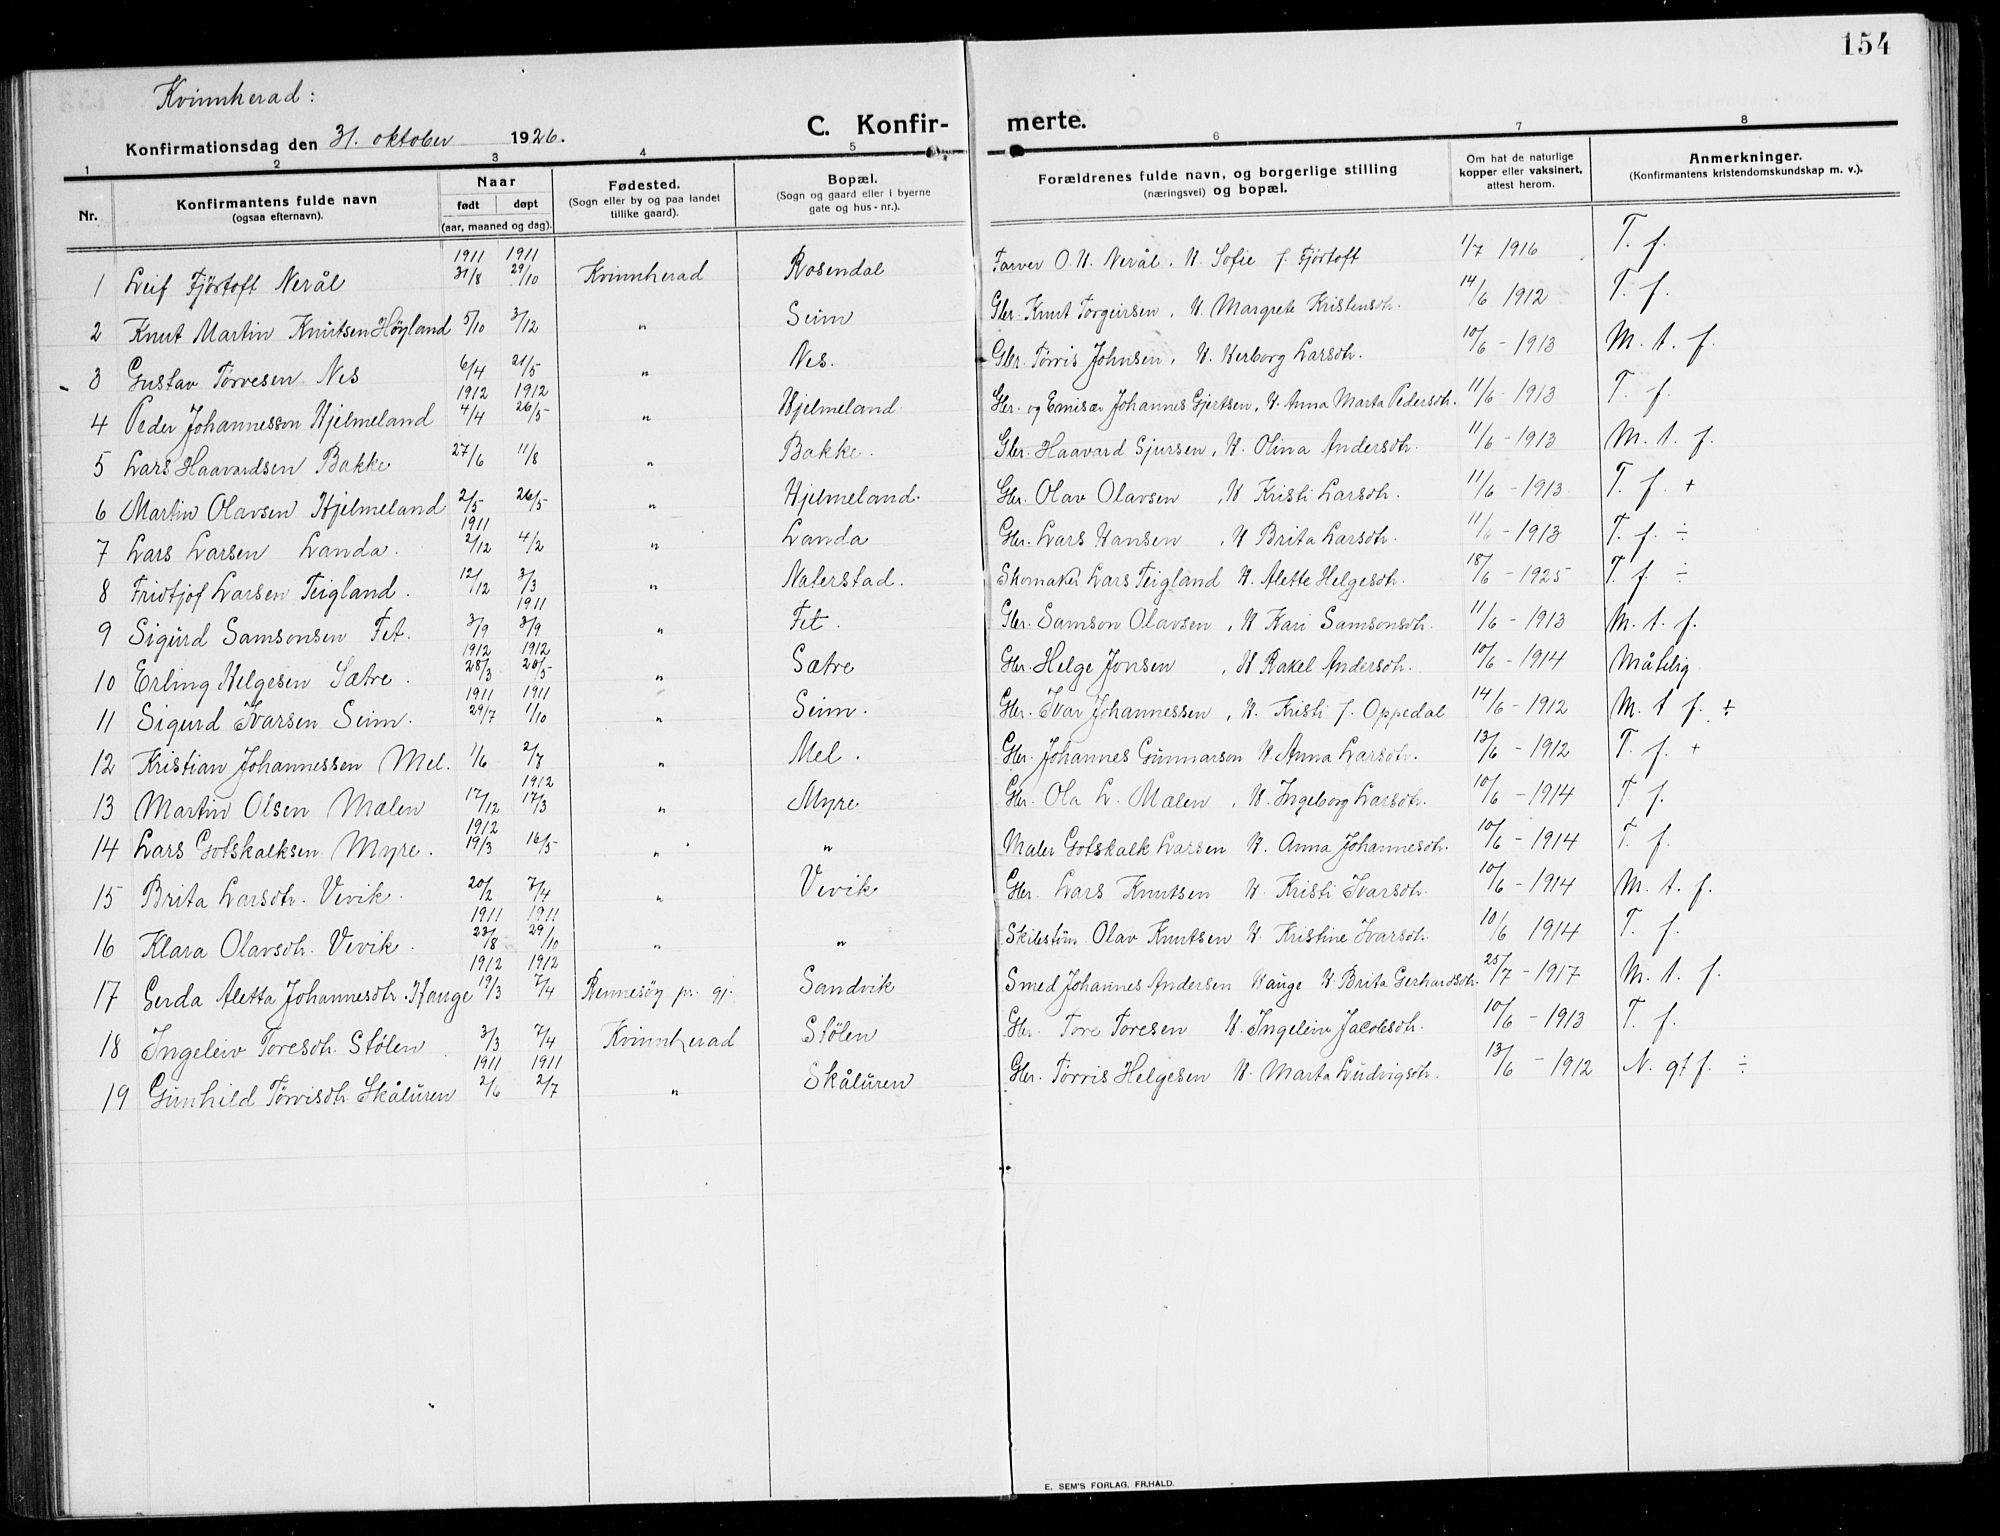 154
Kvinnherad:
Konfirmationsdag den 31. oktober 1926.
C. Konfir- merte.
1 2 3 4 5 6 7 8
Nr. Konfirmantens fulde navn (ogsaa efternavn). Naar født døpt (aar, maaned og dag). Fødested. (Sogn eller by og paa landet tillike gaard). Bopæl. (Sogn og gaard eller i byerne gate og hus-nr.). Forældrenes fulde navn, og borgerlige stilling (næringsvei) og bopæl. Om hat de naturlige kopper eller vaksinert, attest herom. Anmerkninger. (Konfirmantens kristendomskundskap m. v.).
1911 1911
1 Leif Fjörtoft Nerål 31/8 29/10 Kvinnherad Rosendal Farver O. H. Nerål. H. Sofie f. Fjörtoft 1/7 1916 T. f.
2 Knut Martin Knutsen Höyland 5/10 3/12 " Seim Gbr. Knut Torgeirsen, H. Margrete Kristensdtr. 14/6 1912 T. f.
3 Gustav Törvesen Nes 6/4 21/5 " Nes. Gbr. Törris Johnsen, H. Herborg Larsdtr. 10/6 - 1913 M. t. f.
1912 1912
4 Peder Johannesson Hjelmeland 4/4 26/5 " Hjelmeland. Gbr. og Emisær Johannes Gjertsen, H. Anna Marta Pedersdtr. 11/6 - 1913 T. f.
5 Lars Haavardsen Bakke 27/6 11/8 " Bakke. Gbr. Haavard Sjursen, H. Olina Andersdtr. 11/6 - 1913 M. t. f.
6 Martin Olavsen Hjelmeland 2/5 26/5 " Hjelmeland. Gbr. Olav Olavsen, H Kristi Larsdtr. 11/6 - 1913 T. f. +
1911
7 Lars Larsen Landa. 2/12 4/2 " Landa Gbr. Lars Hansen, H Brita Larsdtr. 11/6 - 1913 T. f. ÷
8 Fridtjof Larsen Teigland. 12/12 3/3 " Naterstad. Skomaker Lars Teigland H. Alette Helgesdtr. 18/6 - 1925 T. f. ÷
1911
9 Sigurd Samsonsen Fet. 3/9 3/9 " Fet. Gbr. Samson Olavsen, H Kari Samsonsdtr. 11/6 - 1913 M. t. f.
1912 1912
10 Erling Helgesen Sætre. 28/3 20/5 " Sætre Gbr. Helge Jonsen, H Rakel Andersdtr. 10/6 - 1914 Måtelig
1911 1911
11 Sigurd Ivarsen Seim. 29/7 1/10 " Seim. Gbr. Ivar Johannessen, H. Kristi f. Oppedal 14/6 - 1912 M. t f. ÷
12 Kristian Johannessen Mel. 1/6 2/7 " Mel. Gbr. Johannes Gunnarson H Anna Larsdtr. 13/6 - 1912 T. f. +
1912
13 Martin Olsen Mælen 17/12 17/3 " Myre Gbr. Ola L. Mælen, H. Ingeborg Larsdtr. 10/6 - 1914 T f.
1912
14 Lars Gotskalksen Myre. 19/3 16/5 " " Maler Gotskalk Larsen H. Anna Johannesdtr. 10/6 - 1914 T. f.
15 Brita Larsdtr. Vevik. 20/2 7/4 " Vevik Gbr. Lars Knutsen H Kristi Ivarsdtr. 10/6 - 1914 M. t. f.
1911 1911
16 Klara Olavsdtr. Vevik. 23/8 29/10 " " Skibstöm. Olav Knutsen H Kristine Ivarsdtr. 10/6 1914 T. f.
1912 1912
17 Gerda Aletta Johannesdtr. Hauge 19/3 7/4 Rennesöy pr. gj. Sandvik Smed Johannes Andersen Hauge H Brita Gerhardsdtr. 25/7 - 1917 M. t. f.
18 Ingeleiv Toresdtr. Stölen 3/3 7/4 Kvinnherad Stölen Gbr. Tore Toresen H. Ingeleiv Jacobsdtr. 10/6 - 1913 T. f.
1911 1911
19 Gunhild Törrisdtr. Skåluren 2/6 2/7 " Skåluren Gbr. Törris Helgesen H. Marta Ludvigsdtr. 13/6 - 1912 N. gt f. ÷
E. SEM'S FORLAG, FR.HALD.